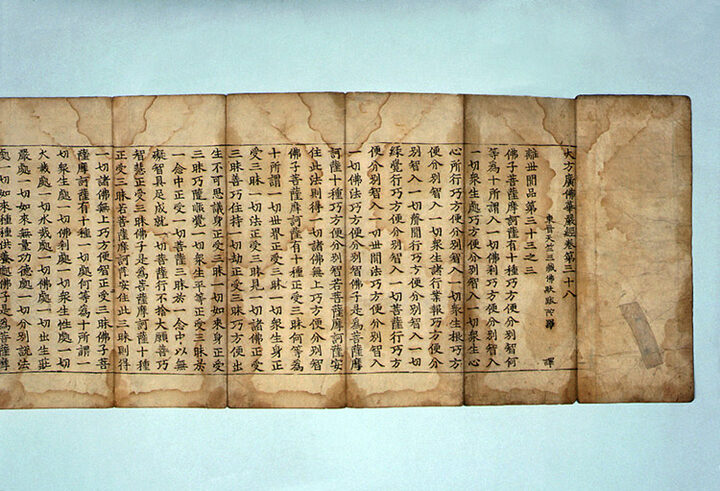 大方廣佛華嚴經卷第三十八
東晉天竺三藏佛馱跋陀羅 譯
離世間品第三十三之三
佛子菩薩摩訶薩有十種巧方便分別智何
等為十所謂入一切佛剎巧方便分別智入
一切衆生處巧方便分別智入一切衆生心
心所行巧方便分別智入一切衆生根巧方
便分別智入一切衆生諸行業報巧方便分
別智入一切聲聞行巧方便分別智入一切
緣覺行巧方便分別智入一切菩薩行巧方
便分別智入一切世間法巧方便分別智入
一切佛法巧方便分別智佛子是為菩薩摩
訶薩十種巧方便分別智若菩薩摩訶薩安
住此法則得一切諸佛無上巧方便分別智
佛子菩薩摩訶薩有十種正受三昧何等為
十所謂一切世界正受三昧一切衆生身正
受三昧一切法正受三昧見一切諸佛正受
三昧善巧住持一切劫正受三昧巧方便出
生不可思議身正受三昧一切如來身正受
三昧巧隨順覺一切衆生平等正受三昧於
一念中正受一切菩薩三昧於一念中以無
礙智具足成就一切菩薩行不捨大願善巧
智慧正受三昧佛子是為菩薩摩訶薩十種
正受三昧若菩薩摩訶薩安住此三昧則得
一切諸佛無上巧方便智正受三昧佛子菩
薩摩訶薩有十種一切處何等為十所謂一
切衆生處一切佛剎處一切衆生性處一切
火災處一切水災處一切佛處一切出生莊
嚴處一切如來無量功德處一切分別說法
處一切如來種種供養處佛子是為菩薩摩